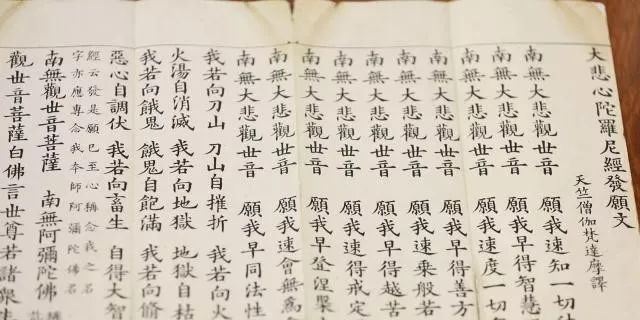 大悲心陀羅尼經發願文
天竺僧伽梵達摩譯
南無大悲觀世音 願我速知一切
南無大悲觀世音 願我早得智慧
南無大悲觀世音 願我速度一切
南無大悲觀世音 願我早得善方
南無大悲觀世音 願我速乘般若
南無大悲觀世音 願我早得越苦
南無大悲觀世音 願我速得戒定
南無大悲觀世音 願我早登涅槃
南無大悲觀世音 願我速會無為
南無大悲觀世音 願我早同法性
我若向刀山 刀山自摧折 我若向火
火湯自消滅 我若向地獄 地獄自枯
我若向餓鬼 餓鬼自飽滿 我若向脩
惡心自調伏 我若向畜生 自得大智
經云發是願已至心稱念我之名
字亦應專念我本師阿彌陀佛名
南無觀世音菩薩 南無阿彌陀佛
觀世音菩薩白佛言世尊若諸眾